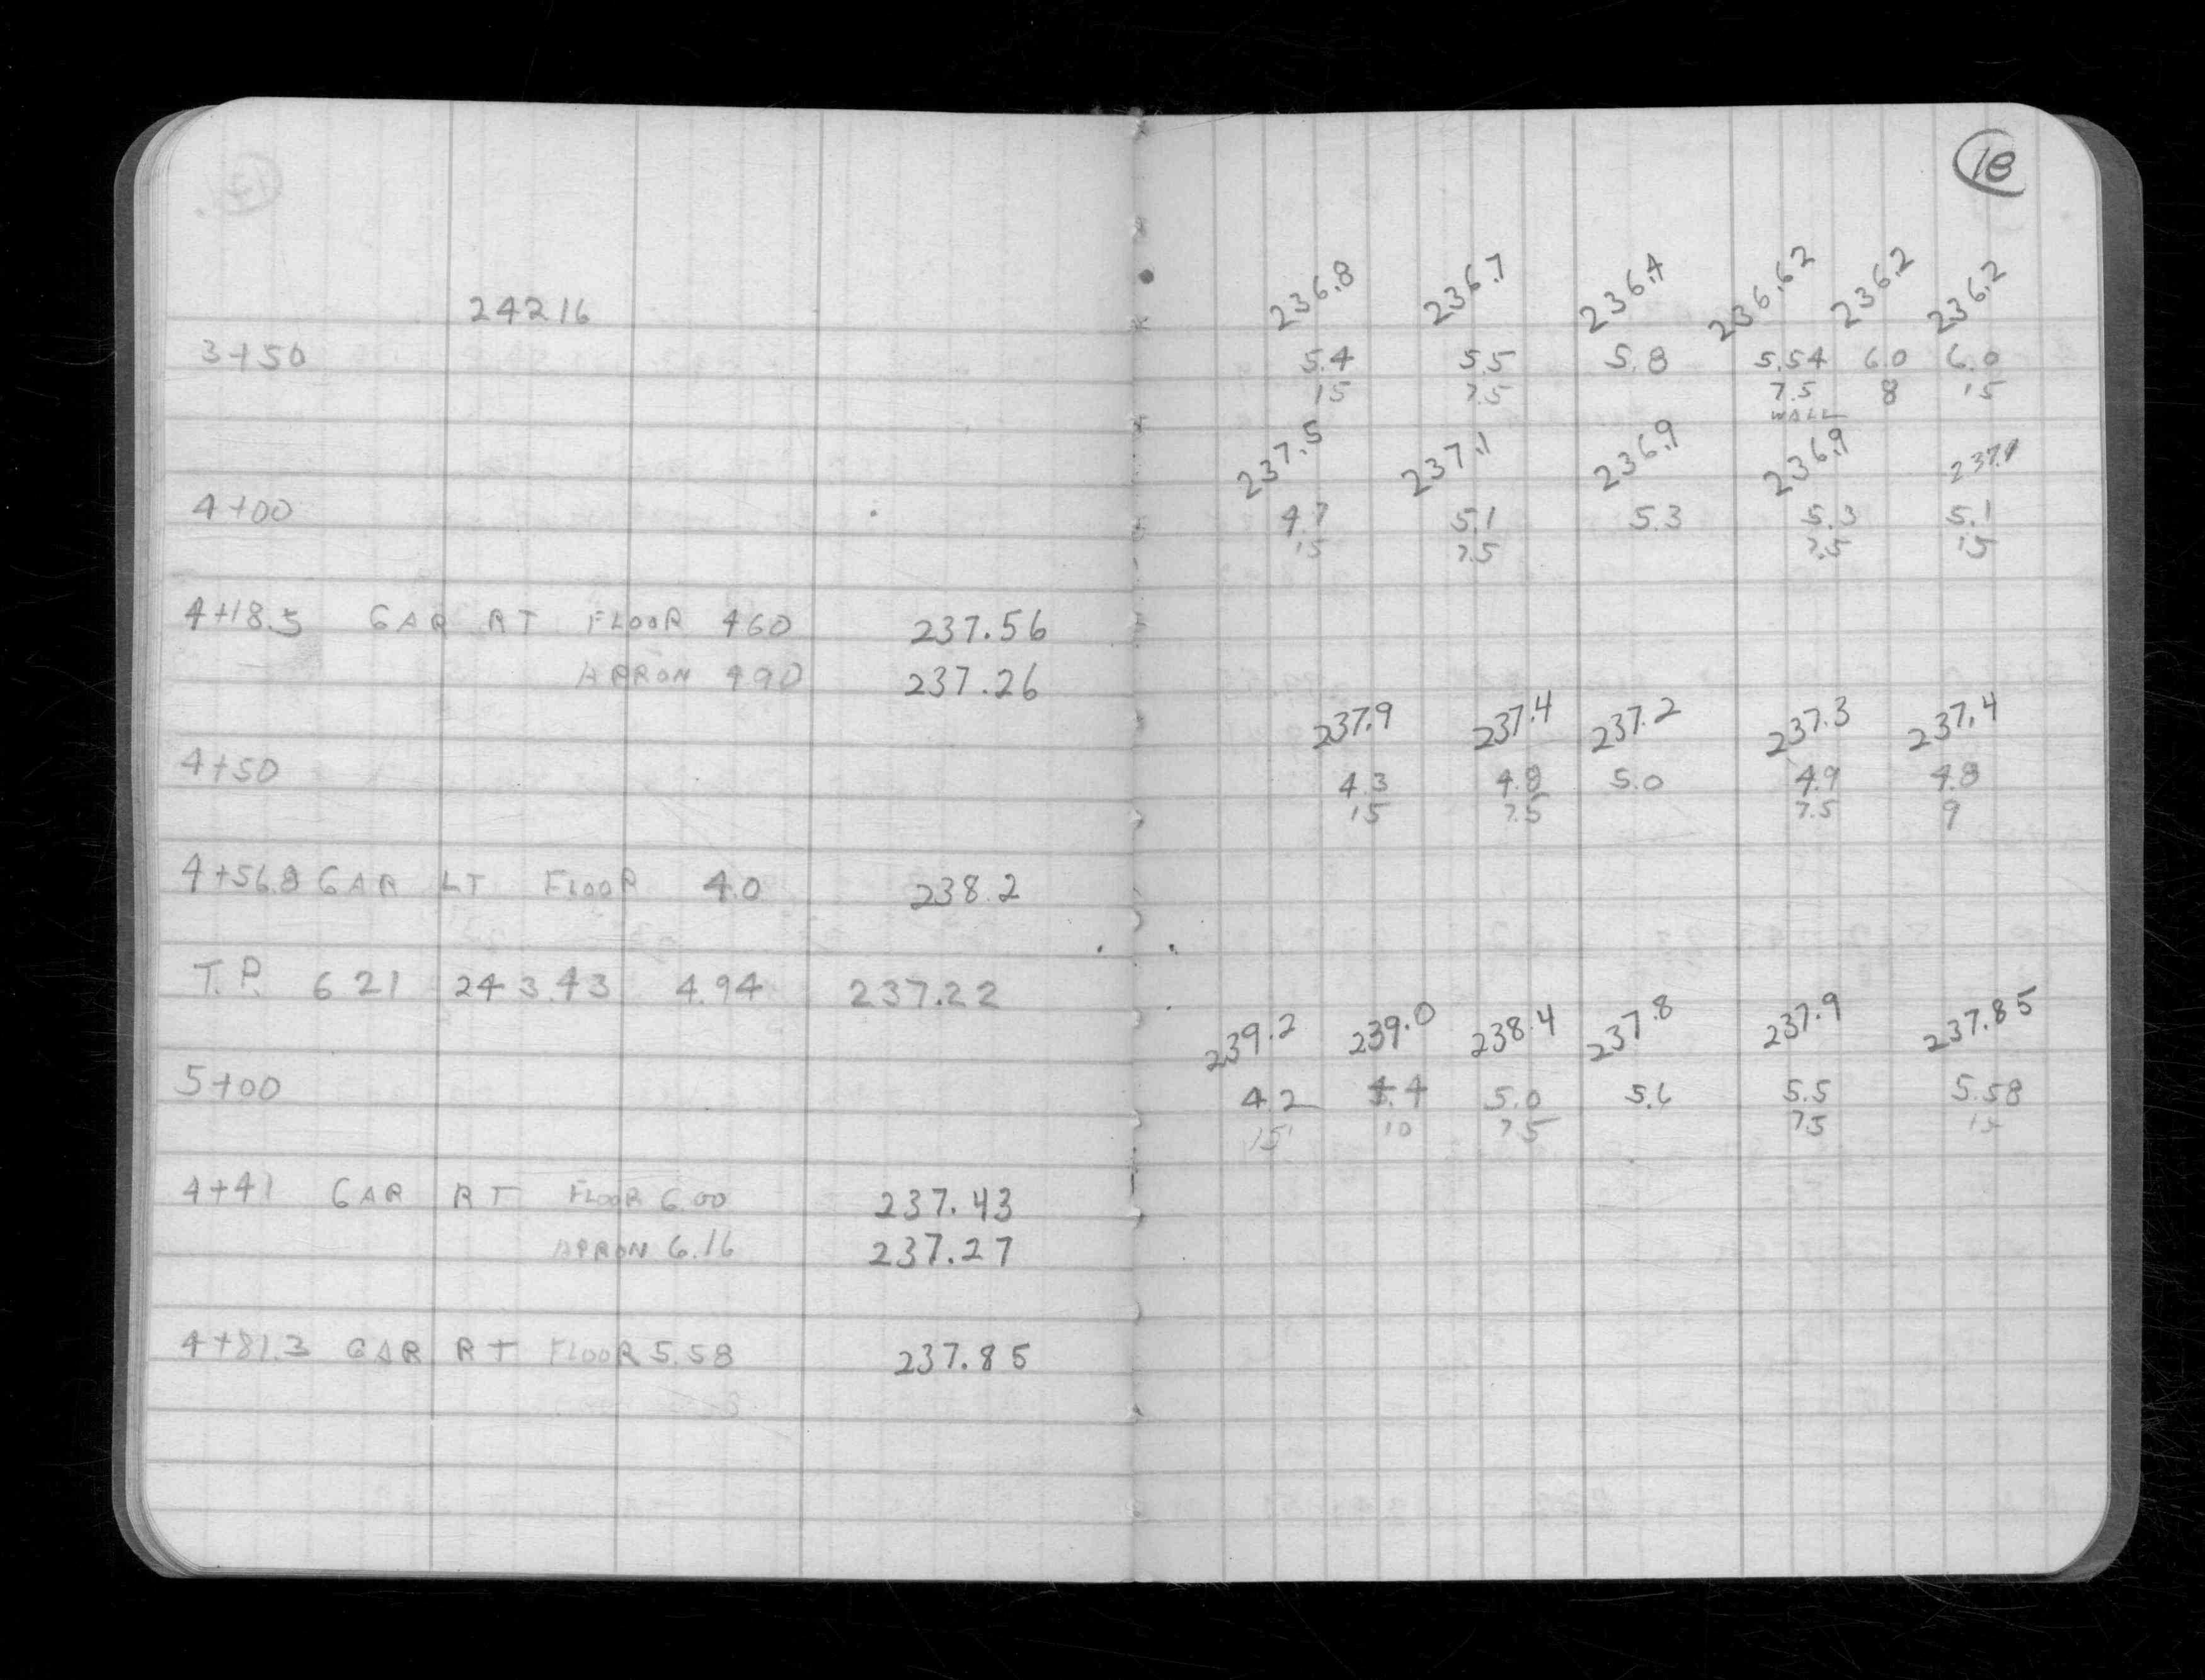 18
242.16
236.8 236.7 236.4 236.62 236.2 236.2
3+50 5.4 5.5 5.8 5.54 6.0 6.0
15 7.5 7.5 8 15
WALL
237.5 237.1 236.9 236.9 237.1
4+00 4.7 5.1 5.3 5.3 5.1
15 7.5 7.5 15
4+18.5 GAR RT FLOOR 460 237.56
APRON 490 237.26
237.9 237.4 237.2 237.3 237.4
4+50 4.3 4.8 5.0 4.9 4.8
15 7.5 7.5 9
4+56.8 GAR LT FLOOR 4.0 238.2
T.P. 6 21 243.43 4.94 237.22
239.2 239.0 238.4 237.8 237.9 237.85
5+00 4.2 4.4 5.0 5.6 5.5 5.58
15 10 7.5 7.5 15
4+41 GAR RT FLOOR 6.00 237.43
APRON 6.16 237.27
4+81.3 GAR RT FLOOR 5.58 237.85